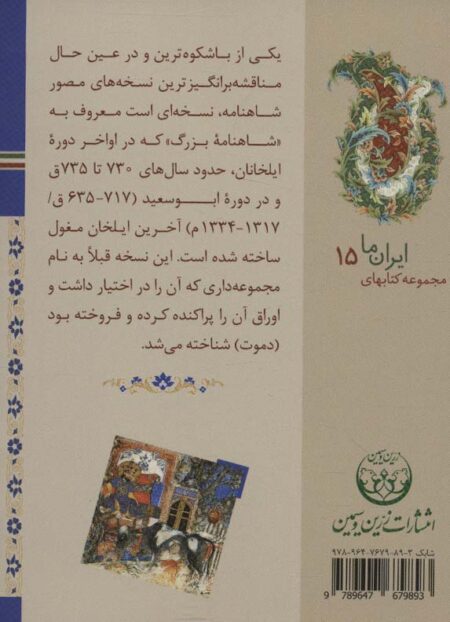 یکی از باشکوه‌ترین و در عین حال
مناقشه‌برانگیزترین نسخه‌های مصور
شاهنامه، نسخه‌ای است معروف به
«شاهنامهٔ بزرگ» که در اواخر دورهٔ
ایلخانان، حدود سال‌های ۷۳۰ تا ۷۳۵ق
و در دورهٔ ابوسعید (۷۱۷-۶۳۵ ق/
۱۳۱۷-۱۳۳۴ م) آخرین ایلخان مغول
ساخته شده است. این نسخه قبلاً به نام
مجموعه‌داری که آن را در اختیار داشت و
اوراق آن را پراکنده کرده و فروخته بود
(دموت) شناخته می‌شد.
ایران ما ۱۵
مجموعه کتابهای
زرین و سیمین
انتشارات زرّین و سیمین
شابک ۳-۸۹-۷۶۷۹-۹۶۴-۹۷۸
9 789647 679893